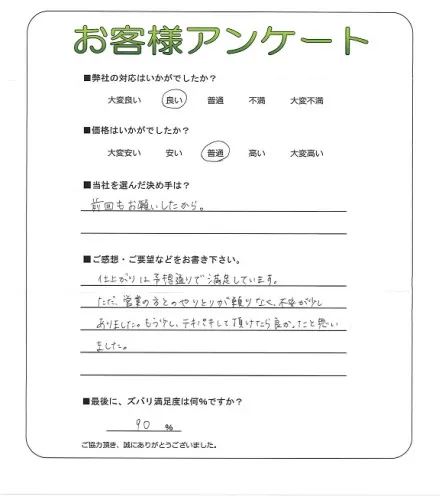 お客様アンケート
■弊社の対応はいかがでしたか?
大変良い 良い 普通 不満 大変不満
■価格はいかがでしたか?
大変安い 安い 普通 高い 大変高い
■当社を選んだ決め手は?
前回もお願いしたから。
■ご感想・ご要望などをお書き下さい。
仕上がりは予想通りで満足しています。
ただ、営業の方とのやりとりが頼りなく、不安が少し
ありました。もう少し、テキパキして頂けたら良かったと思い
ました。
■最後に、ズバリ満足度は何%ですか?
90 %
ご協力頂き、誠にありがとうございました。